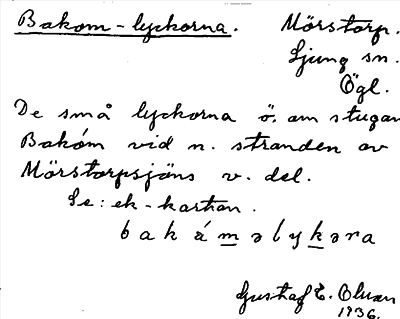 Bakom-lyckorna. Mörstorp.
Ljung sn.
Ögl.
De små lyckorna ö. om stugan
Bakóm vid n. stranden av
Mörstorpsjöns v. del.
Se: ek-kartan.
bakáməlykəra
Gustaf E. Olson
1936.